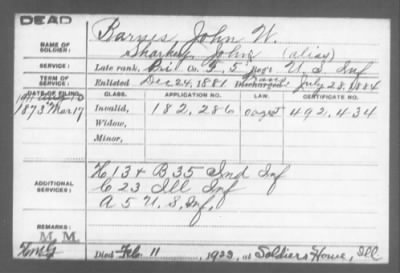 DEAD
NAME OF SOLDIER: Barnes, John W.
Sharkey, John (alias)
SERVICE: Late rank, Pri Co. G, 5 Reg't U. S. Inf
TERM OF SERVICE: Enlisted Dec 24, 1881 Discharged July 28, 1884
DATE OF FILING. CLASS. APPLICATION NO. LAW. CERTIFICATE NO.
1873 Mar 17 Invalid, 182,286 492,434
Widow,
Minor,
ADDITIONAL SERVICES: K 13 & B 35 Ind Inf
C 23 Ill Inf
A 5 U. S. Inf.
REMARKS: M. M.
Died Feb. 11, 1922, at Soldiers Home, Ill